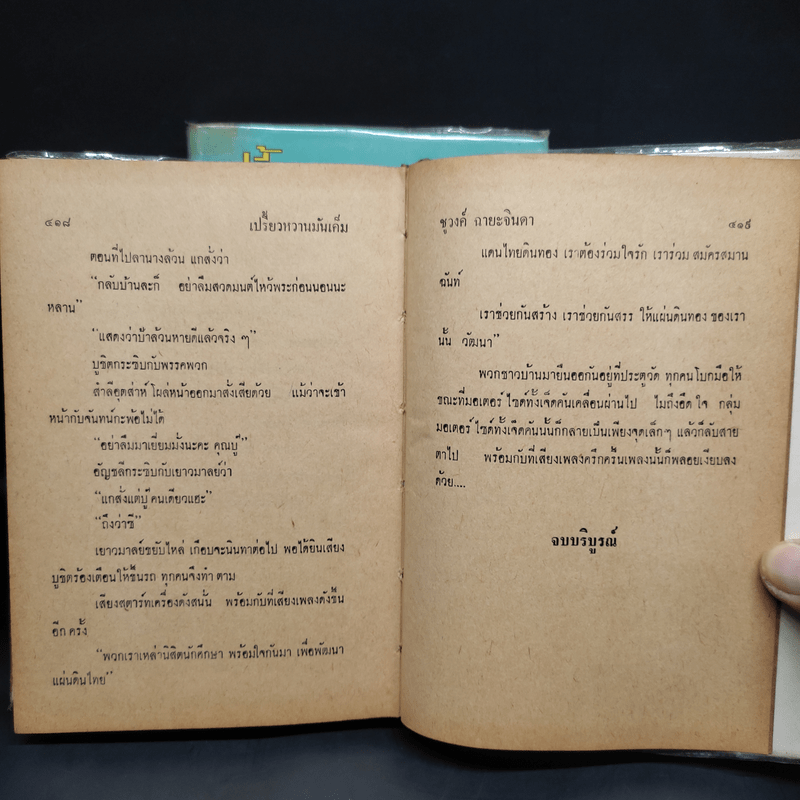 ๔๑๘ เปรี้ยวหวานมันเค็ม
ตอนที่ไปลานางล้วน แกสั่งว่า
“กลับบ้านละก็ อย่าลืมสวดมนต์ไหว้พระก่อนนอนนะ
หลาน”
“แสดงว่าป้าล้วนหายดีแล้วจริง ๆ”
บูชิตกระซิบกับพรรคพวก
สำลีอุตส่าห์ โผล่หน้าออกมาสั่งเสียด้วย แม้ว่าจะเข้า
หน้ากับจันทน์กะพ้อไม่ได้
“อย่าลืมมาเยี่ยมมั่งนะคะ คุณบู๊”
อัญชลีกระซิบกับเยาวมาลย์ว่า
“แกสั่งแต่บู๊ คนเดียวแฮะ”
“ถึงว่าซี”
เยาวมาลย์ขยับไหล่ เกือบจะนินทาต่อไป พอได้ยินเสียง
บูชิตร้องเตือนให้ขึ้นรถ ทุกคนจึงทำ ตาม
เสียงสตาร์ทเครื่องดังสนั่น พร้อมกับที่เสียงเพลงดังขึ้น
อีก ครั้ง
“พวกเราเหล่านิสิตนักศึกษา พร้อมใจกันมา เพื่อพัฒนา
แผ่นดินไทย”
ชูวงศ์ ฉายะจินดา ๔๑๙
แดนไทยดินทอง เราต้องร่วมใจรัก เราร่วม สมัครสมาน
ฉันท์
เราช่วยกันสร้าง เราช่วยกันสรร ให้แผ่นดินทอง ของเรา
นั้น วัฒนา”
พวกชาวบ้านมายืนออกันอยู่ที่ประตูวัด ทุกคนโบกมือให้
ขณะที่มอเตอร์ ไซด์ทั้งเจ็ดคันเคลื่อนผ่านไป ไม่ถึงอึด ใจ กลุ่ม
มอเตอร์ ไซด์ทั้งเจ็ดคันนั้นก็กลายเป็นเพียงจุดเล็กๆ แล้วก็ลับสาย
ตาไป พร้อมกับที่เสียงเพลงครึกครื้นเพลงนั้นก็พลอยเงียบลง
ด้วย....
จบบริบูรณ์